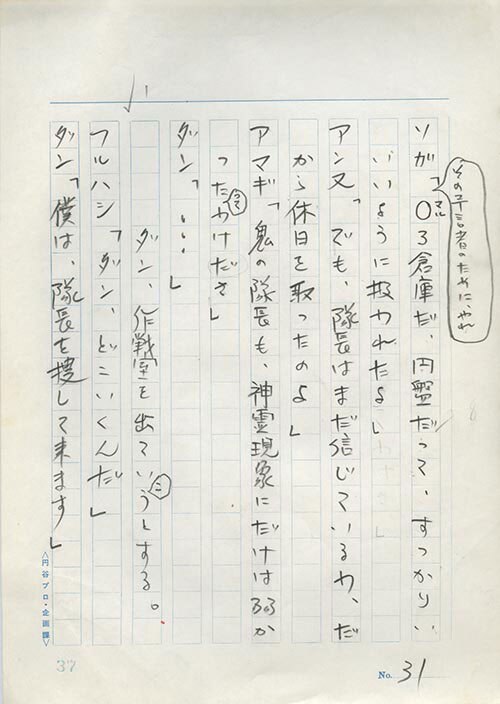 その予言者のために、やれ
ソガ「０３倉庫だ、円盤だって、すっかりい
マル
いいように扱われたよ」
アンヌ「でも、隊長はまだ信じているわ、だ
から休日を取ったのよ」
アマギ「鬼の隊長も、神霊現象にだけは弱か
ったわけださ」
ダン「・・・」
ダン、作戦室を出ていうとする。
こ
フルハシ「ダン、どこいくんだ」
ダン「僕は、隊長を捜して来ます」
<円谷プロ・企画課>
37
No. 31